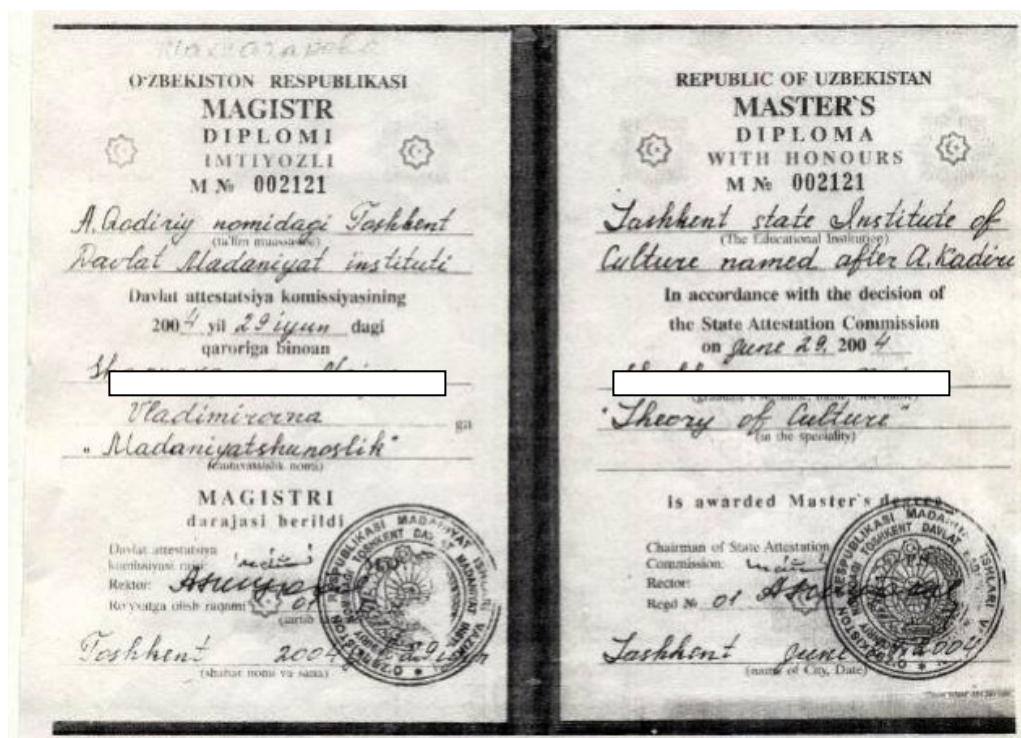 O'ZBEKISTON RESPUBLIKASI
MAGISTR
DIPLOMI
IMTIYOZLI
M № 002121
A. Qodiriy nomidagi Toshkent
(ta'lim muassasasi)
Davlat Madaniyat instituti
Davlat attestatsiya komissiyasining
2004 yil 29 iyun dagi
qaroriga binoan
Vladimirovna ga
"Madaniyatshunoslik"
(mutaxassislik nomi)
MAGISTRI
darajasi berildi
Davlat attestatsiya
komissiyasi raisi:
Rektor:
Ro'yxatga olish raqami 01
Toshkent 2004
(shahar nomi va sana)
REPUBLIC OF UZBEKISTAN
MASTER`S
DIPLOMA
WITH HONOURS
M № 002121
Tashkent state Institute of
(The Educational Institution)
Culture named after A. Kadiri
In accordance with the decision of
the State Attestation Commission
on June 29, 2004
"Theory of Culture"
(in the speciality)
is awarded Master's degree
Chairman of State Attestation
Commission:
Rector:
Regd № 01
Tashkent June 2004
(name of City, Date)